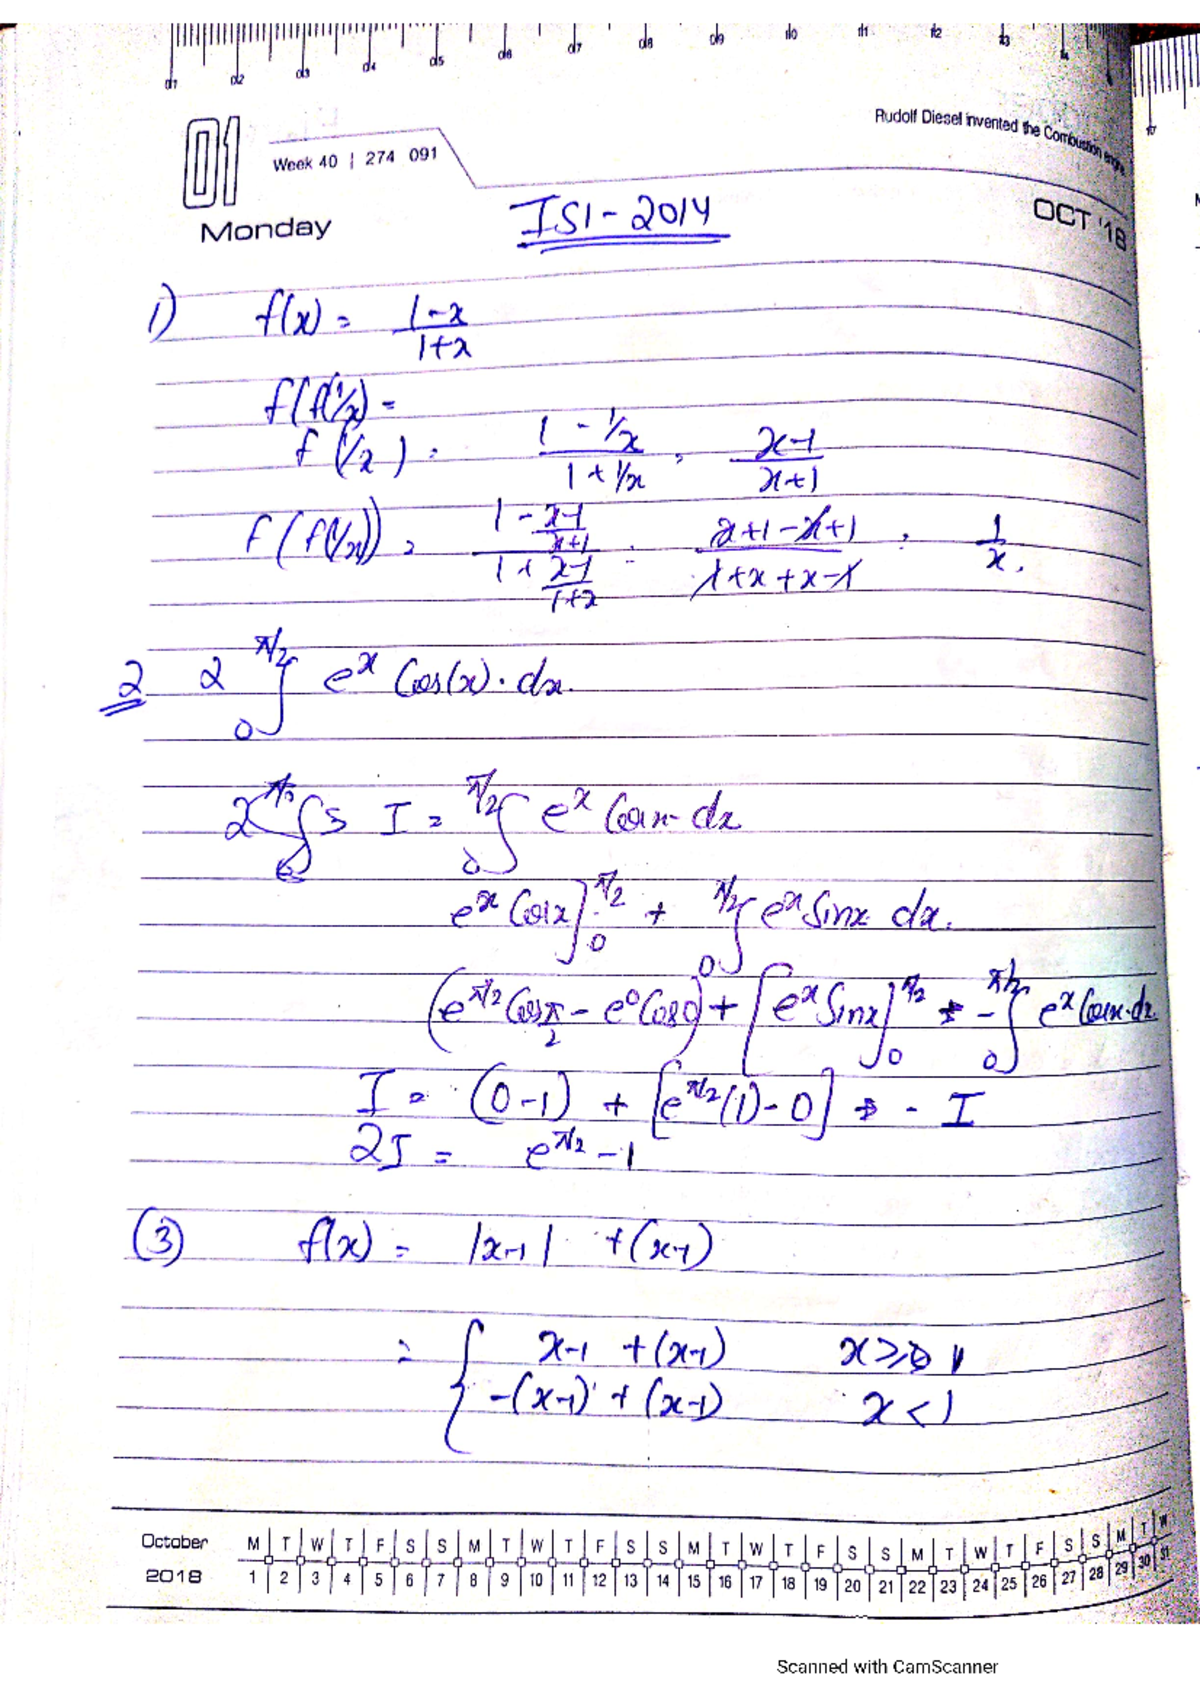 d1 d2 d3 d4 d5 d6 d7 d8 d9 d10 d11 d12 d13
01
Week 40 | 274 091
Rudolf Diesel invented the Combustion
Monday
ISI-2014
OCT '18
1) f(x) = (1-x)/(1+x)
f(f(1/x) =
f(1/x) = (1 - 1/x)/(1 + 1/x) = (x-1)/(x+1)
f(f(1/x)) = (1 - (x-1)/(x+1))/(1 + (x-1)/(1+x)) = (x+1-x+1)/(1+x+x-1) = 1/x.
2 2 ∫₀^{π/2} e^x Cos(x)·dx.
I = ∫₀^{π/2} e^x Cosx dx
e^x Cosx]₀^{π/2} + ∫₀^{π/2} e^x Sinx dx.
(e^{π/2} Cos π/2 - e^0 Cos0) + [e^x Sinx]₀^{π/2} - ∫₀^{π/2} e^x Cosx·dx.
I = (0-1) + [e^{π/2}(1)-0] - I
2I = e^{π/2} -1
(3) f(x) = |x-1| + (x-1)
= { x-1 + (x-1) x≥ 1
-(x-1) + (x-1) x<1
October M T W T F S S M T W T F S S M T W T F S S M T W T F S S M T W
2018 1 2 3 4 5 6 7 8 9 10 11 12 13 14 15 16 17 18 19 20 21 22 23 24 25 26 27 28 29 30 31
Scanned with CamScanner